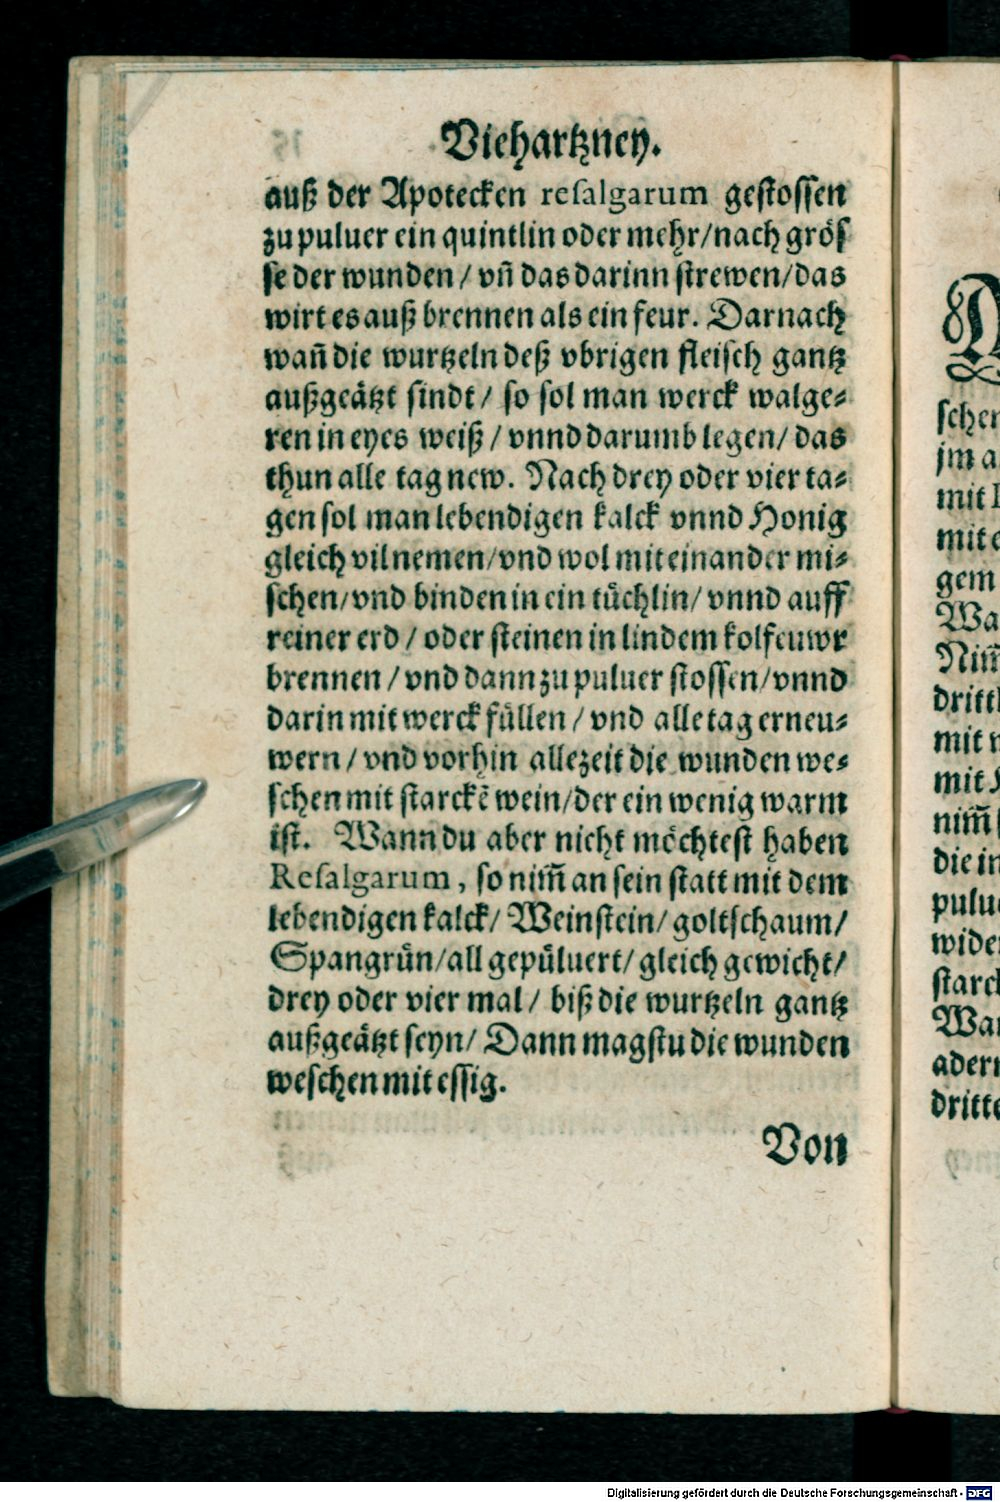 Viehartzney.
auß der Apotecken resalgarum gestossen
zu puluer ein quintlin oder mehr/nach grös
se der wunden / vn̄ das darinn strewen/das
wirt es auß brennen als ein feur. Darnach
wan̄ die wurtzeln deß vbrigen fleisch gantz
außgeätzt sindt / so sol man werck walge⸗
ren in eyes weiß / vnnd darumb legen/ das
thun alle tag new. Nach drey oder vier ta⸗
gen sol man lebendigen kalck vnnd Honig
gleich vil nemen/vnd wol mit einander mi⸗
schen/vnd binden in ein tüchlin/ vnnd auff
reiner erd / oder steinen in lindem kolfeuwr
brennen / vnd dann zu puluer stossen/vnnd
darin mit werck füllen / vnd alle tag erneu⸗
wern / vnd vorhin allezeit die wunden we⸗
schen mit starckē wein/der ein wenig warm
ist. Wann du aber nicht möchtest haben
Resalgarum, so nim̄ an sein statt mit dem
lebendigen kalck/ Weinstein/ goltschaum/
Spangrün/all gepüluert/ gleich gewicht/
drey oder vier mal / biß die wurtzeln gantz
außgeätzt seyn/ Dann magstu die wunden
weschen mit essig.
Von
schen
jm a
mit
mit e
gem
Wa
Nim̄
dritt
mit
mit
nim̄
die in
pulu
wider
starck
Wan
adern
dritte
Digitalisierung gefördert durch die Deutsche Forschungsgemeinschaft - DFG